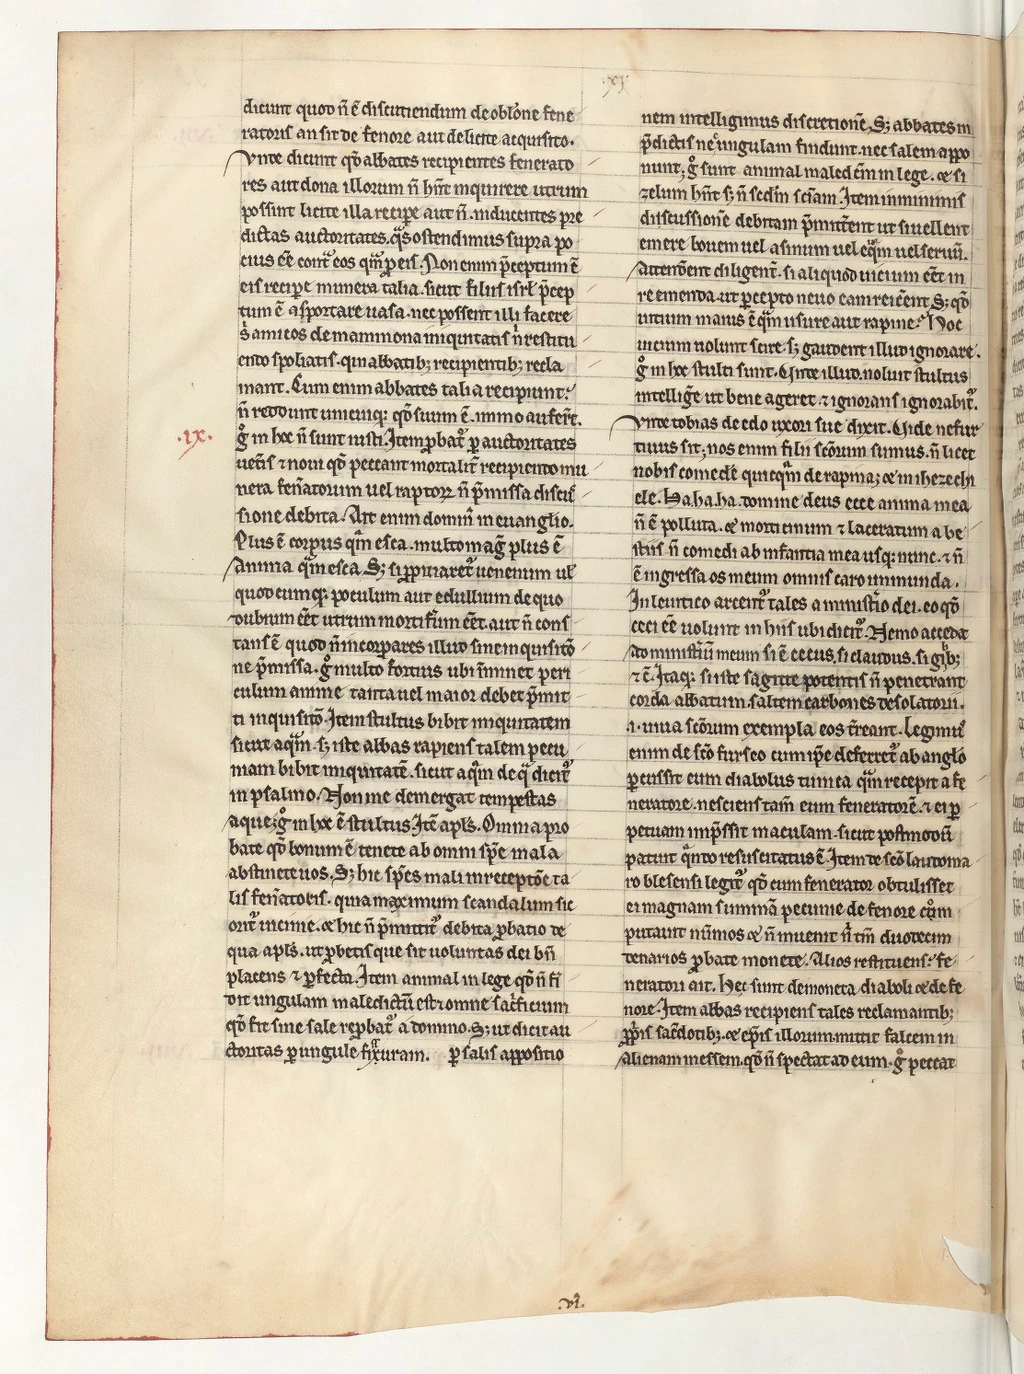 .xv.
dicunt quod n̄ ē discutiendum de oblōne fene
ratoris an sit de fenore aut de licite acquisito.
Vnde dicunt qđ abbates recipientes fenerato
res aut dona illorum n̄ hn̄t inquirere utrum
possint licite illa recipe aut n̄. inducentes pre
dictas auctoritates. q̄s ostendimus supra po
cius ēe cont̄ eos qm̄ p eis. Non enim p̄ceptum ē
eis recipe munera talia. sicut filiis isrl̄ p̄cep
tum ē asportare uasa. nec possent illi facere
s̄ amicos de mammona iniquitatis n̄ restitu
endo spoliatis. qui abbatib; recipientib; recla
mant. Cum enim abbates talia recipiunt.
n̄ reddunt unicuiq; qđ suum ē. immo auferē̄t.
.ix.
g̊ in hoc n̄ sunt iusti. Item p̱bat᷑ p auctoritates
uet̄is ⁊ noui qđ peccant mortalit̄ recipiendo mu
nera fen̄atorum uel raptorꝝ n̄ p̄missa discu
sione debita. Ait enim domin᷑ in euanglio.
Plus ē corpus qm̄ esca. multo mag̊ plus ē
Anima qm̄ esca. S; si p̱pinaret᷑ uenenum ul̄
quodcumq; poculum aut edullium de quo
dubium ēet utrum mortifm̄ ēet. aut n̄ cons
tans ē quod n̄ incorpares illud sine inquisitō
ne p̄missa. g̊ multo fortius ubi īminet peri
culum anime tanta uel maior debet p̄mit
ti inquisitō. Item stultus bibit iniquitatem
sicut aqm̄. s; iste abbas rapiens talem pecu
niam bibit iniquitatē. sicut aqm̄ de qᵃ dicit᷑
in psalmo. Non me demergat tempestas
aque; g̊ in hoc ē stultus. Itē apl̄s. Omnia pro
bate qđ bonum ē tenete ab omni spē mala
abstinete uos. S; hic sp̄es mali in receptōe ta
lis fen̄atoris. quia maximum scandalum sic
orit᷑ inde. & hic n̄ p̄mittit᷑ debita p̱batio de
qua apl̄s. ut p̱betis que sit uoluntas dei bn̄
placens ⁊ pfecta. Item animal in lege qđ n̄ fi
dit ungulam maledictū est ⁊ omne sac̄ficium
qđ fit sine sale rep̱bat᷑ a domino. S; ut dicit au
ctoritas p ungule fixuram. p salis appositio
nem intelligimus discretionē. S; abbates in
p̄dictis nec̄ ungulam findunt. nec salem appo
nunt; g̊ sunt animal maledc̄m in lege. & si
zelum hn̄t s; n̄ sedm̄ sciām. Item in minimis
discussionē debitam p̄mitt̄ent ut si uellent
emere bouem uel asinum uel eqm̄ uel seruū.
Attend̄ent diligent̄. si aliquod uicium ēet in
re emenda. ut p̱cepto neuo eam reic̄ent. S; qđ
uitium maius ē qm̄ usure aut rapine? Hoc
uicium nolunt scire. s; gaudent illud ignorare.
g̊ in hoc stulti sunt. Unde illud. noluit stultus
intellige᷑ ut bene ageret ⁊ ignorans ignorabit᷑.
Vnde tobias de edo uxori sue dixit. Uide ne fur
tiuus sit; nos enim filii scōrum sumus. n̄ licet
nobis comedē quicqm̄ de rapina; & in ihezechi
ele. Ha. ha. ha. domine deus ecce anima mea
n̄ ē polluta. & morticinum ⁊ laceratum a be
stiis n̄ comedi ab infantia mea usq; nunc. ⁊ n̄
ē ingressa os meum omnis caro inmunda.
In leuitico arcent᷑ tales a ministio dei. eo qđ
ceci ēe uolunt in hiis ubi dicit᷑. Nemo accedat
ad ministiū meum si ē cecus. si claudus. si gib;
⁊ c̄. Itaq; si iste sagitte potentis n̄ penetrant
corda abbatum. saltem carbones desolatorii.
.i. uiua scōrum exempla eos t̄reant. Legimus
enim de scō furseo cum ip̄e deferret᷑ ab anglo
pcussit eum diabolus tunica qm̄ recepit a fe
neratore. nesciens tam̄ eum feneratorē. ⁊ ei p
petuam inp̄ssit maculam. sicut postmodū
patuit qn̄do resuscitatus ē. Item de scō lautoma
ro blesensi legit᷑ qđ cum fenerator obtulisset
ei magnam summā pecunie de fenore com̄
putauit nūmos & n̄ inuenit n̄ tm̄ duodecim
denarios p̱bate monete. Alios restituens fe
neratori ait. Hec sunt de moneta diaboli & de fe
nore. Item abbas recipiens tales reclamantib;
p̱p̱is sac̄dotib;. & ep̄is illorum. mittit falcem in
Alienam messem. qđ n̄ spectat ad eum. g̊ peccat
.vi.